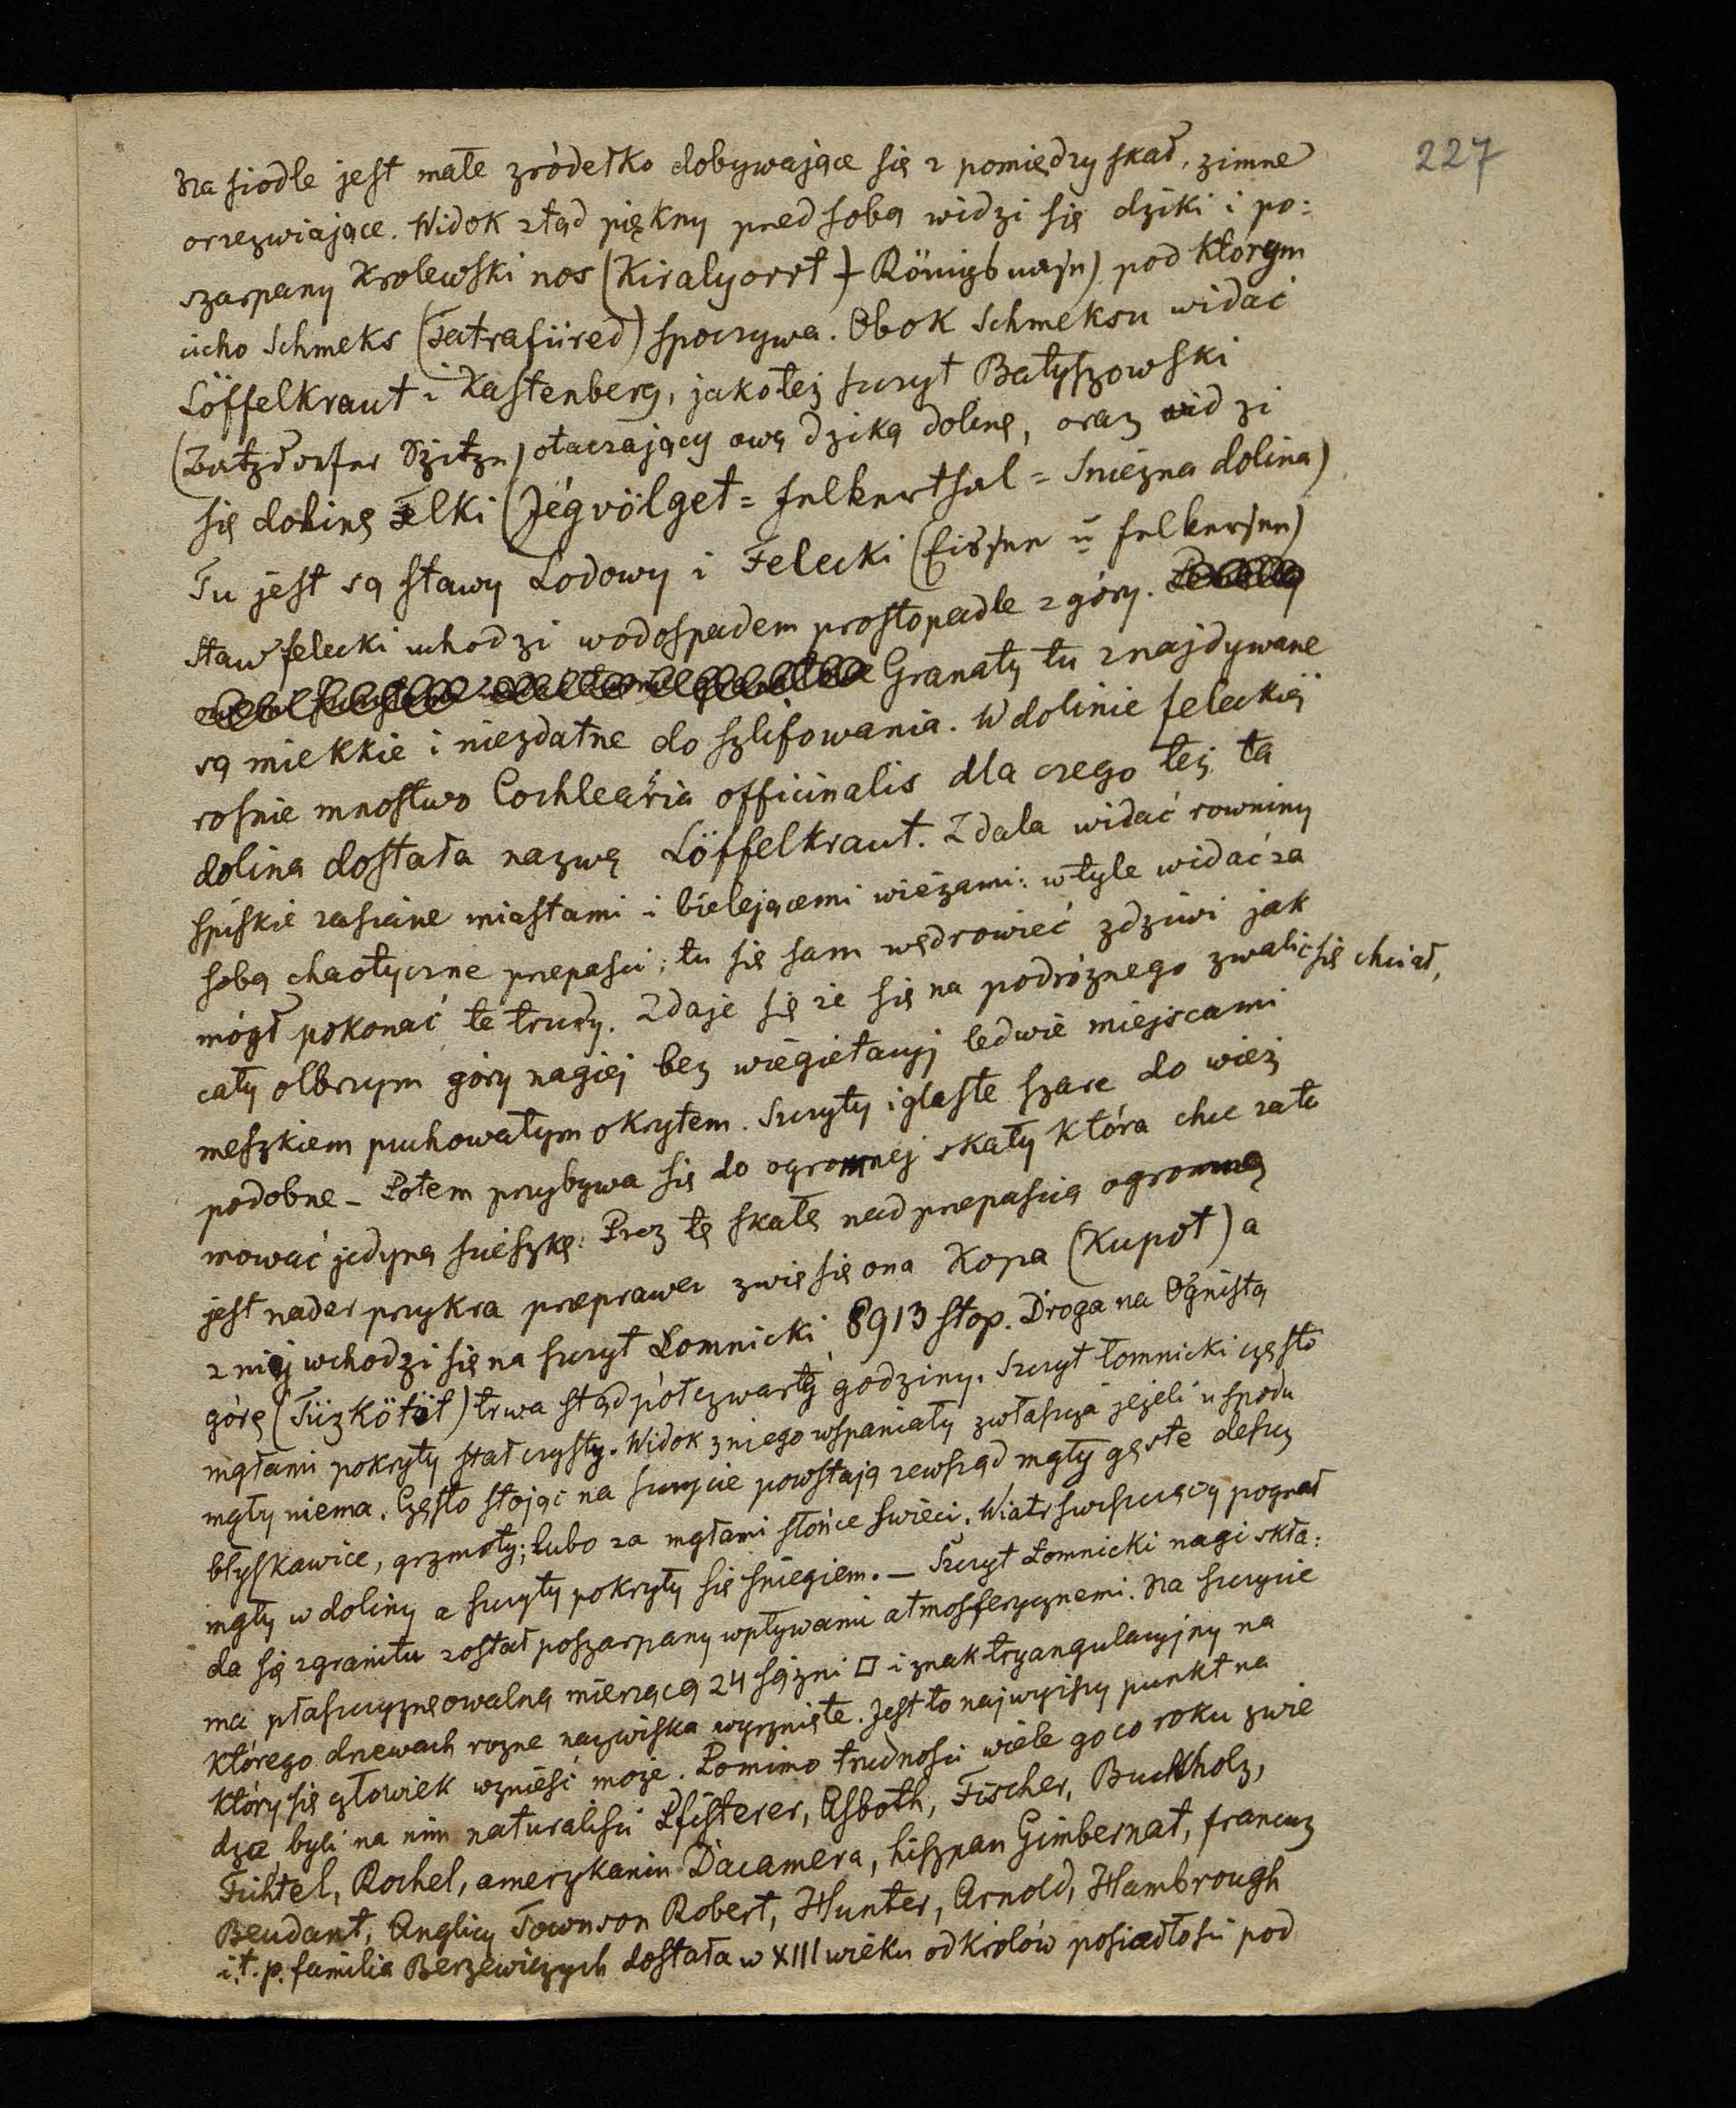 227
Na siodle jest małe zródełko dobywające się z pomiędzy skał, zimne
orzezwiające. Widok ztąd piękny przed sobą widzi się dziki i po:
szarpany Krolewski nos (Kiralyorrt) Königsnase) pod którym
cicho Schmeks (Tatrafüred) spoczywa. Obok Schmeksu widać
Löffelkraut i Kastenberg, jakoteż szczyt Batyszowski
(Batzdorfer Spitze) otaczający ową dziką dolinę, oraz widzi
się dolinę Felki (Jégvölget = Felkerthal = Snieżna dolina)
Tu jest są stawy Lodowy i Felecki (Eissee u Felkersee)
staw felecki uchodzi wodospadem prostopadle z góry.
Granaty tu znajdywane
są miekkie i niezdatne do szlifowania. W dolinie feleckiej
rosnie mnostwo Cochlearia officinalis dla czego też ta
dolina dostała nazwę Löffelkraut. Zdala widać rowniny
spiskie zasiane miastami i bielejącemi wieżami: w tyle widać za
sobą chaotyczne przepasci; tu się sam wędrowiec zdziwi jak
mógł pokonać te trudy. Zdaje się że się na podróznego zwalić się chciał,
cały olbrzym góry nagiej bez wiegietacyj ledwie miejscami
meszkiem puchowatym okrytem. Szczyty iglaste szare do wież
podobne – Potem przybywa się do ogromnej skały która chce zata
mować jedyną scieszkę. Prez tę skałę nad przepascią ogromną
jest nader przykra przeprawa zwie się ona Kopa (Kupot) a
z niej wchodzi się na szczyt Łomnicki 8913 stop. Droga na Ognistą
górę (Tüzkötöt) trwa stąd półczwartej godziny. Szczyt łomnicki często
mgłami pokryty stał czysty. Widok z niego wspaniały zwłaszcza jeżeli u spodu
mgły niema. Często stojąc na szczycie powstają zewsząd mgły gęste deszcz
błyskawice, grzmoty; lubo za mgłami słońce swieci. Wiatr swiszczący pognał
mgły w doliny a szczyty pokryty się sniegiem. – Szczyt Łomnicki nagi skła:
da się z granitu został poszarpany wpływami atmosferycznemi. Na szczycie
ma płaszczyznę owalną mierzącą 24 sążni □ i znak tryangulacyjny na
którego drzewach rozne nazwiska wyrznięte. Jest to najwyższy punkt na
który się człowiek wznieść może. Pomimo trudnosci wiele go co roku zwie
dza byli na nim naturalisci Pfisterer, Asboth, Fischer, Buckholz,
Fichtel, Rochel, amerykanin Dacamera, hiszpan Gimbernat, francuz
Beudant, Anglicy Townson Robert, Hunter, Arnold, Hambrough
i.t.p. familia Berzewiczych dostała w XIII wieku od królów posiadłości pod